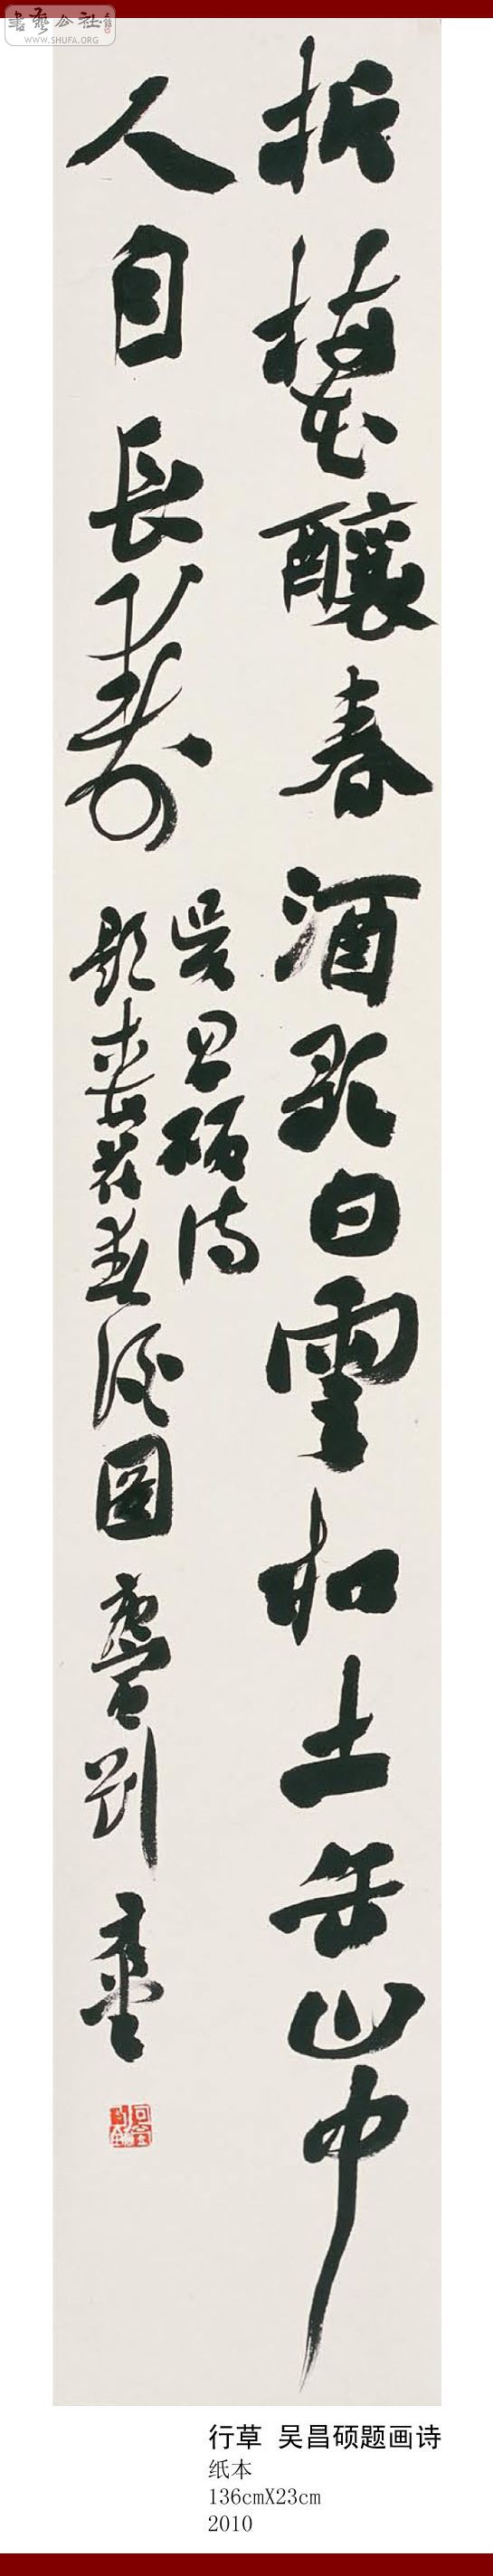 書藝公社
WWW.SHUFA.ORG
折梅花釀春酒歌白雪和土缶山中
人自長壽
吴昌碩詩
題
花春酒圖
行草 吴昌硕题画诗
纸本
136cmX23cm
2010